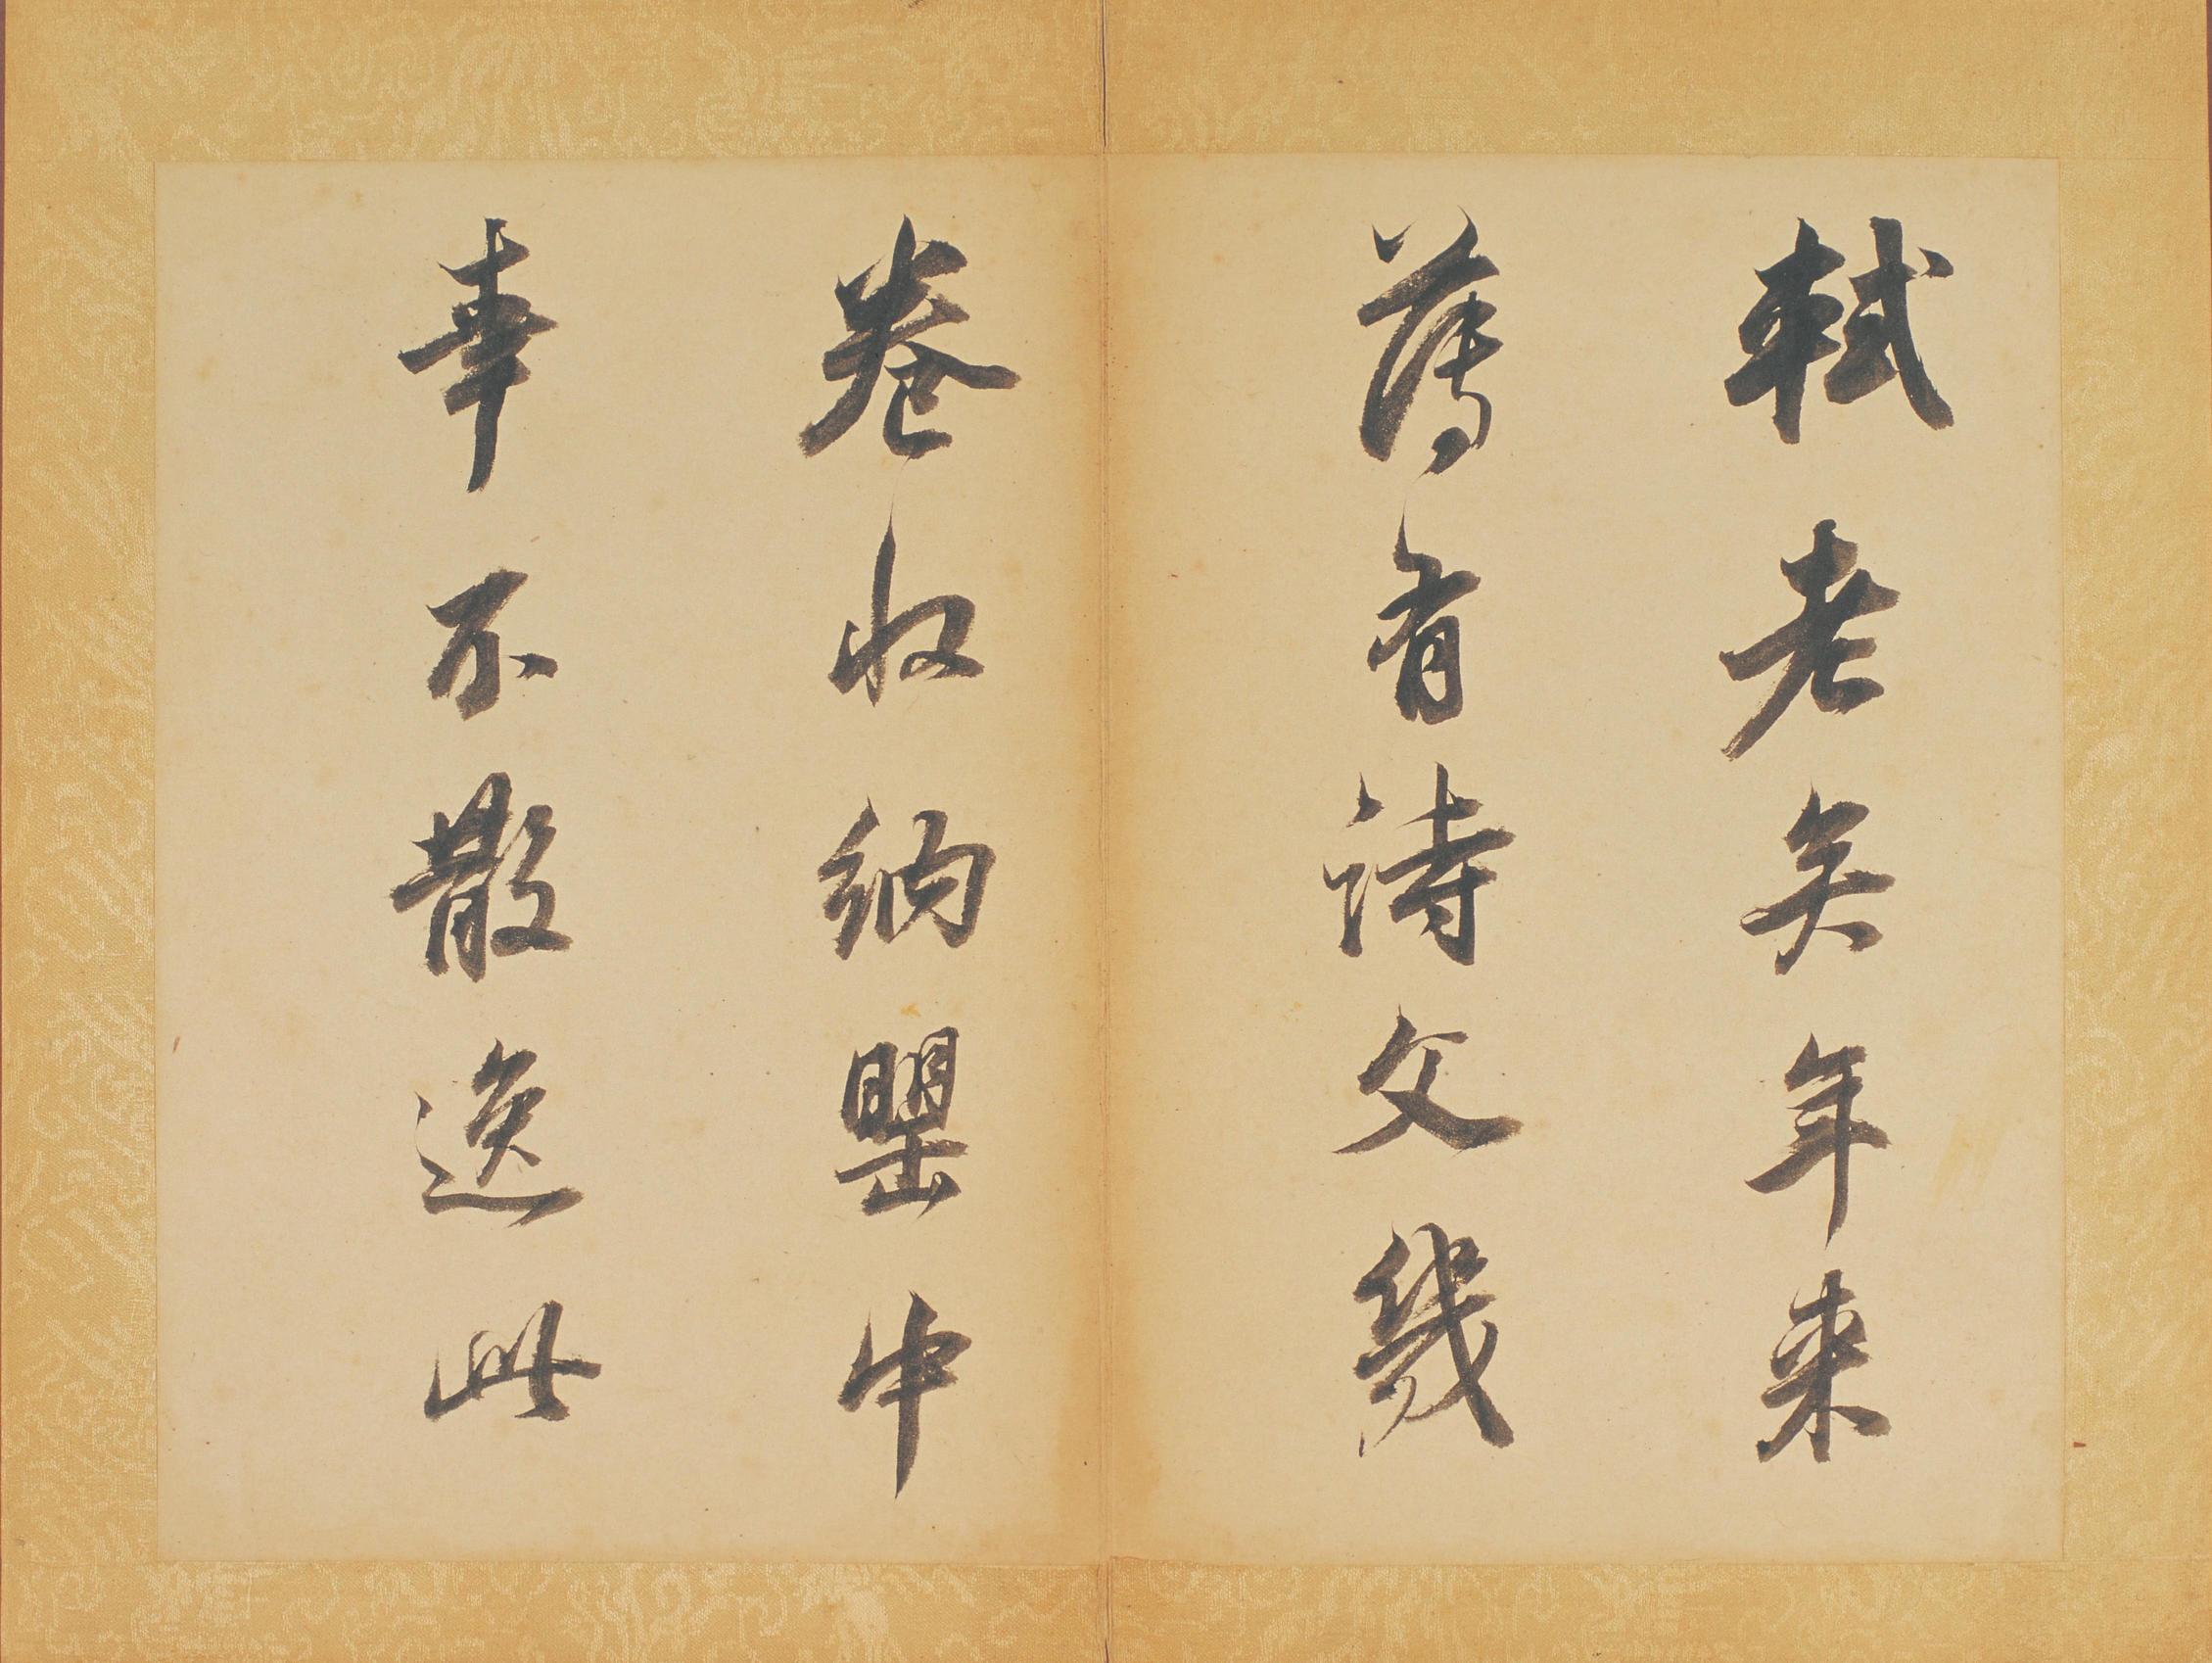 軾老矣年来
薄有詩文幾
卷收納罌中
幸不散逸此